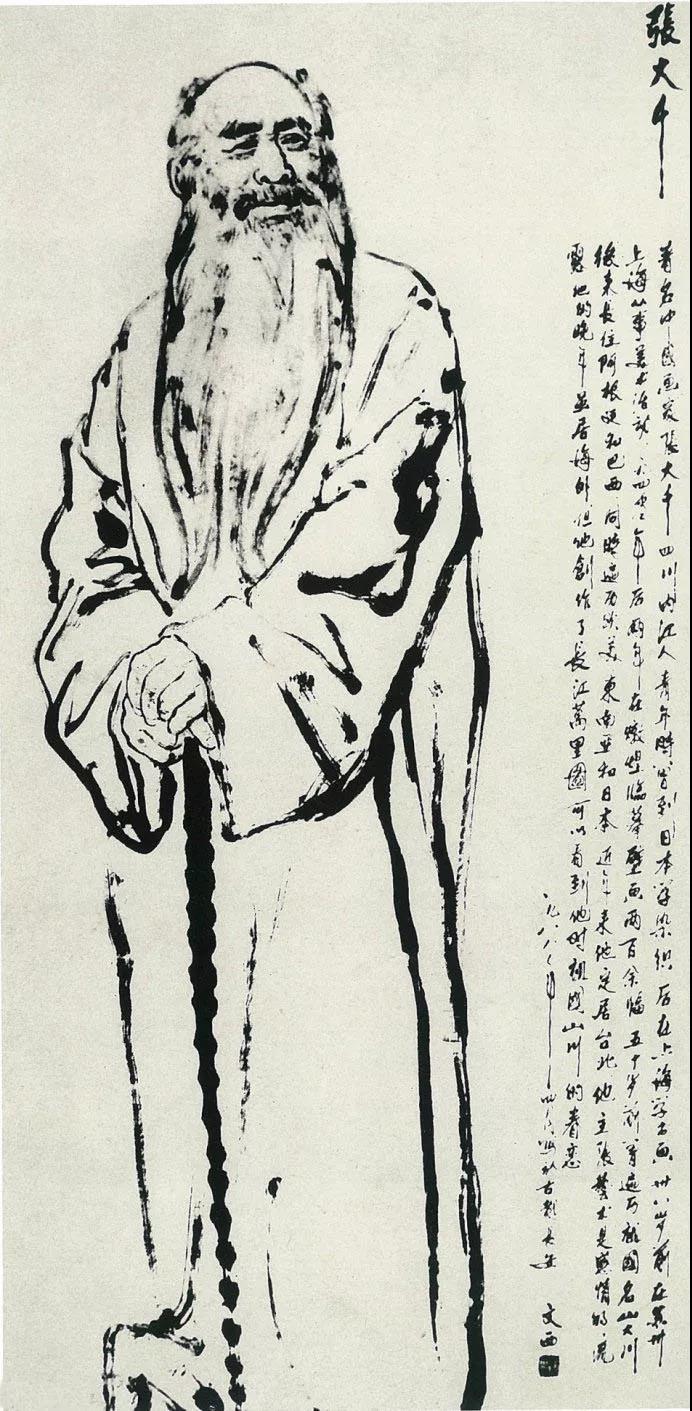 張大千
著名中國画家張大千四川内江人青年時曾到日本学染织后在上海学书画卅八岁前在苏州
上海从事美术活动一九四年后两年在燉煌临摹壁画两百余幅五十岁前曾遍历祖國名山大川
後来長住阿根廷和巴西同時遍历欧美東南亚和日本近年来他定居台北他主张藝术是感情的流
露他的晚年虽居海外但他創作了長江萬里圖可以看到他对祖國山川的眷恋
一九八年四月写於古都長安 文西